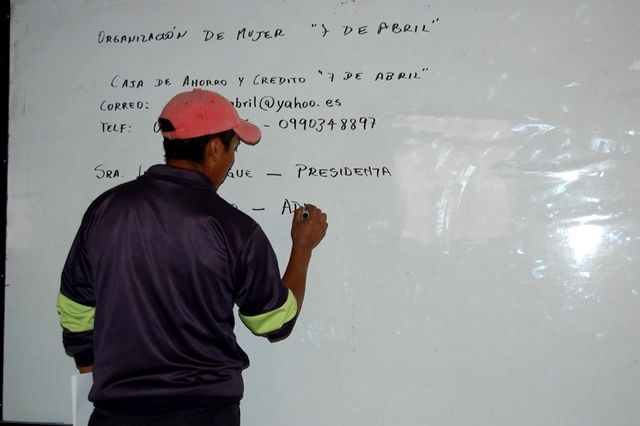 ORGANIZACIÓN DE MUJER "7 DE ABRIL"
CAJA DE AHORRO Y CREDITO "7 DE ABRIL"
CORREO: abril@yahoo.es
TELF: - 0990348897
SRA. — PRESIDENTA
— AD